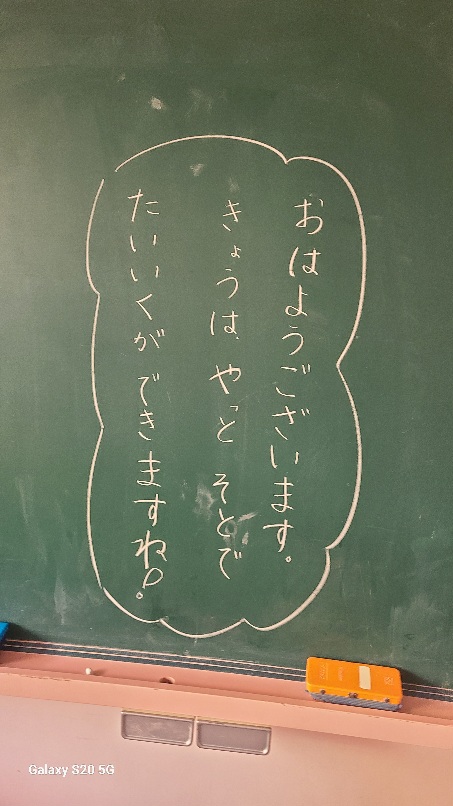 おはようございます。
きょうは やっと そとで
たいいくが できますね!
Galaxy S20 5G